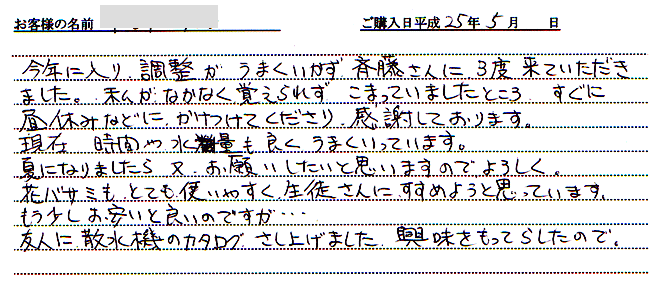 お客様の名前 ご購入日平成25年5月 日
今年に入り 調整が うまくいかず 斉藤さんに 3度 来ていただき
ました。 私がなかなく覚えられず こまっていましたところ すぐに
昼休みなどに かけつけてくださり、感謝しております。
現在 時間や水量も良く うまくいっています。
夏になりましたら 又 お願いしたいと思いますのでよろしく。
花バサミも とても使いやすく、生徒さんにすすめようと思っています。
もう少しお安いと良いのですが…
友人に散水機のカタログ さし上げました 興味をもってらしたので。